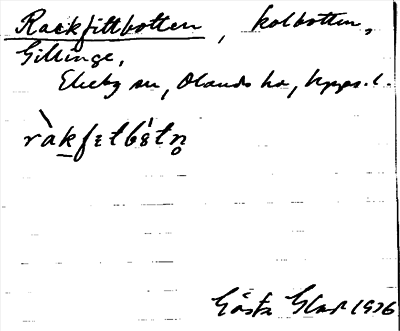 Rackfittbotten, kolbotten,
Gillinge,
Ekeby sn, Olands hd, Upps. l.
ràkfɛtbɛ́tn̥
Gösta 1936